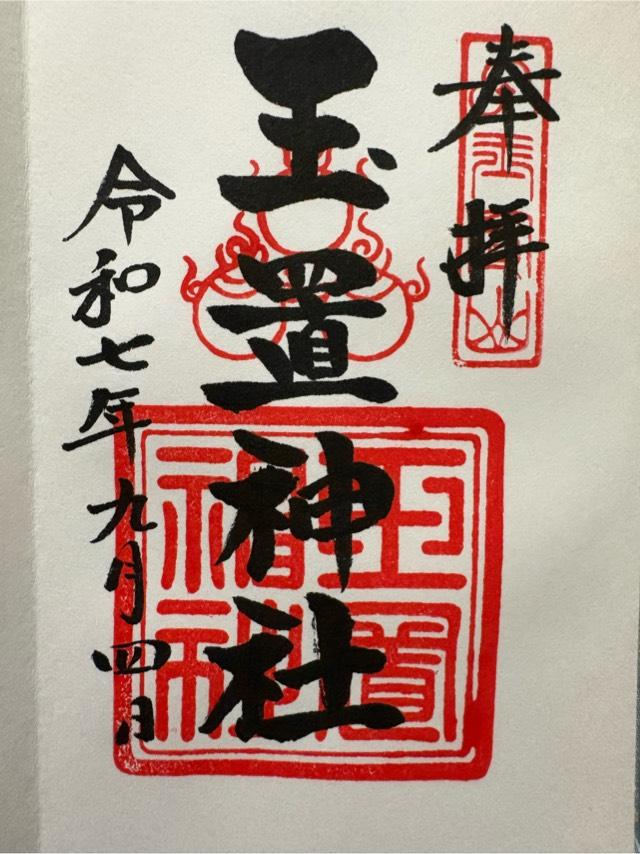 奉拝
玉置神社
令和七年九月四日
玉置神社